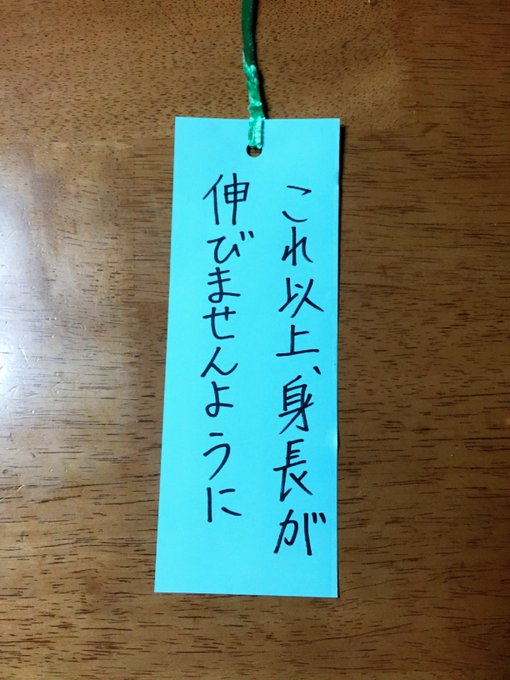 これ以上、身長が
伸びませんように